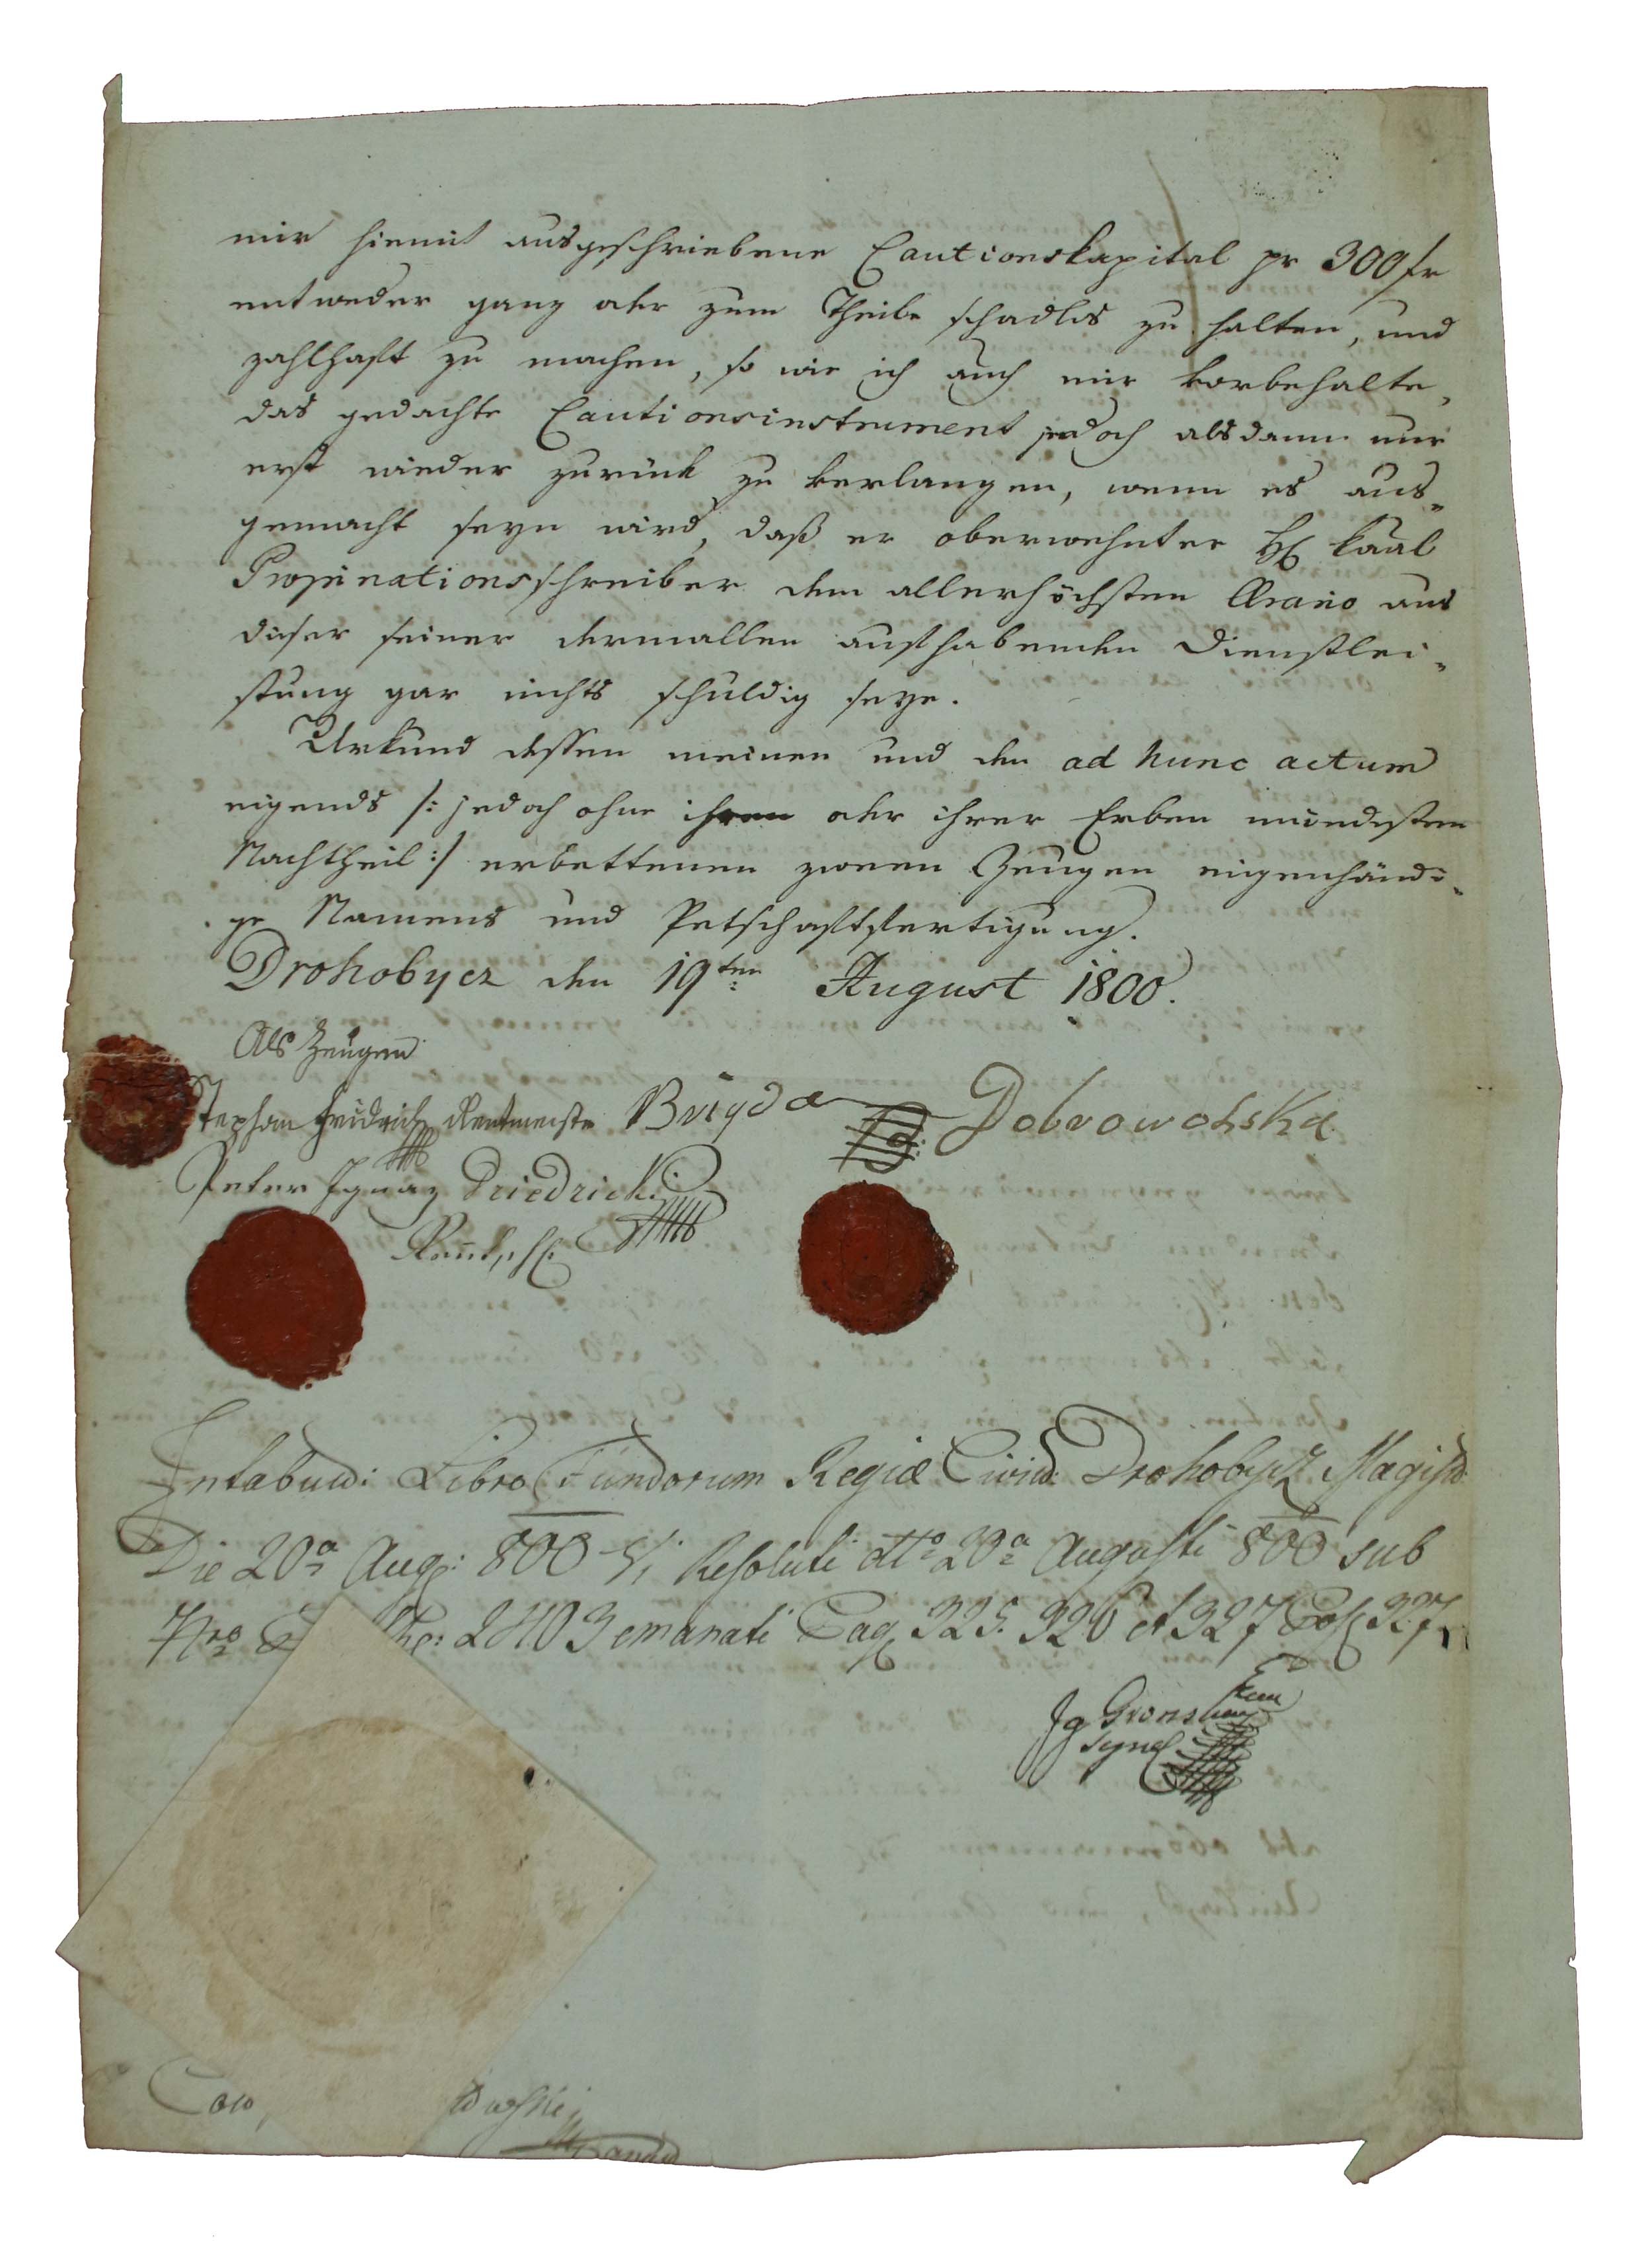 mir hiemit ausgeschriebene Cautionskapital pr 300 fr
entweder ganz oder zum Theile schadlos zu halten, und
zahlhaft zu machen, so wie ich auch mir vorbehalte,
das gedachte Cautionsinstrument jedoch alsdann nur
erst wieder zurück zu verlangen, wenn es aus-
gemacht seyn wird, daß er oberwehnter H kaal
Propinationsschreiber dem allerhöchsten Ærario aus
dieser seiner dermallen aufhabenden Dienstlei-
stung gar nichts schuldig seye.
Urkund dessen meine und der ad hunc actum
eigends /: jedoch ohne ihren oder ihrer Erben mindesten
Nachtheil :/ erbettenen zween Zeugen eigenhändi-
ge Namens und Petschaftsfertigung.
Drohobycz den 19ten August 1800.
Als Zeugen
Stephan Freidrich Rentmeister Brigda Dobrowolska
Peter Ignaz Driedzicki
Intabul: Libro Fundorum Regiæ Civit: Drohobycz Magist
Die 20a Aug: 800 Resoluti dtto 20a Augusti 800 sub
Nro 2403 emanati Pag 325. 326 et 327 Pos 327
Ig Gronski
Synd